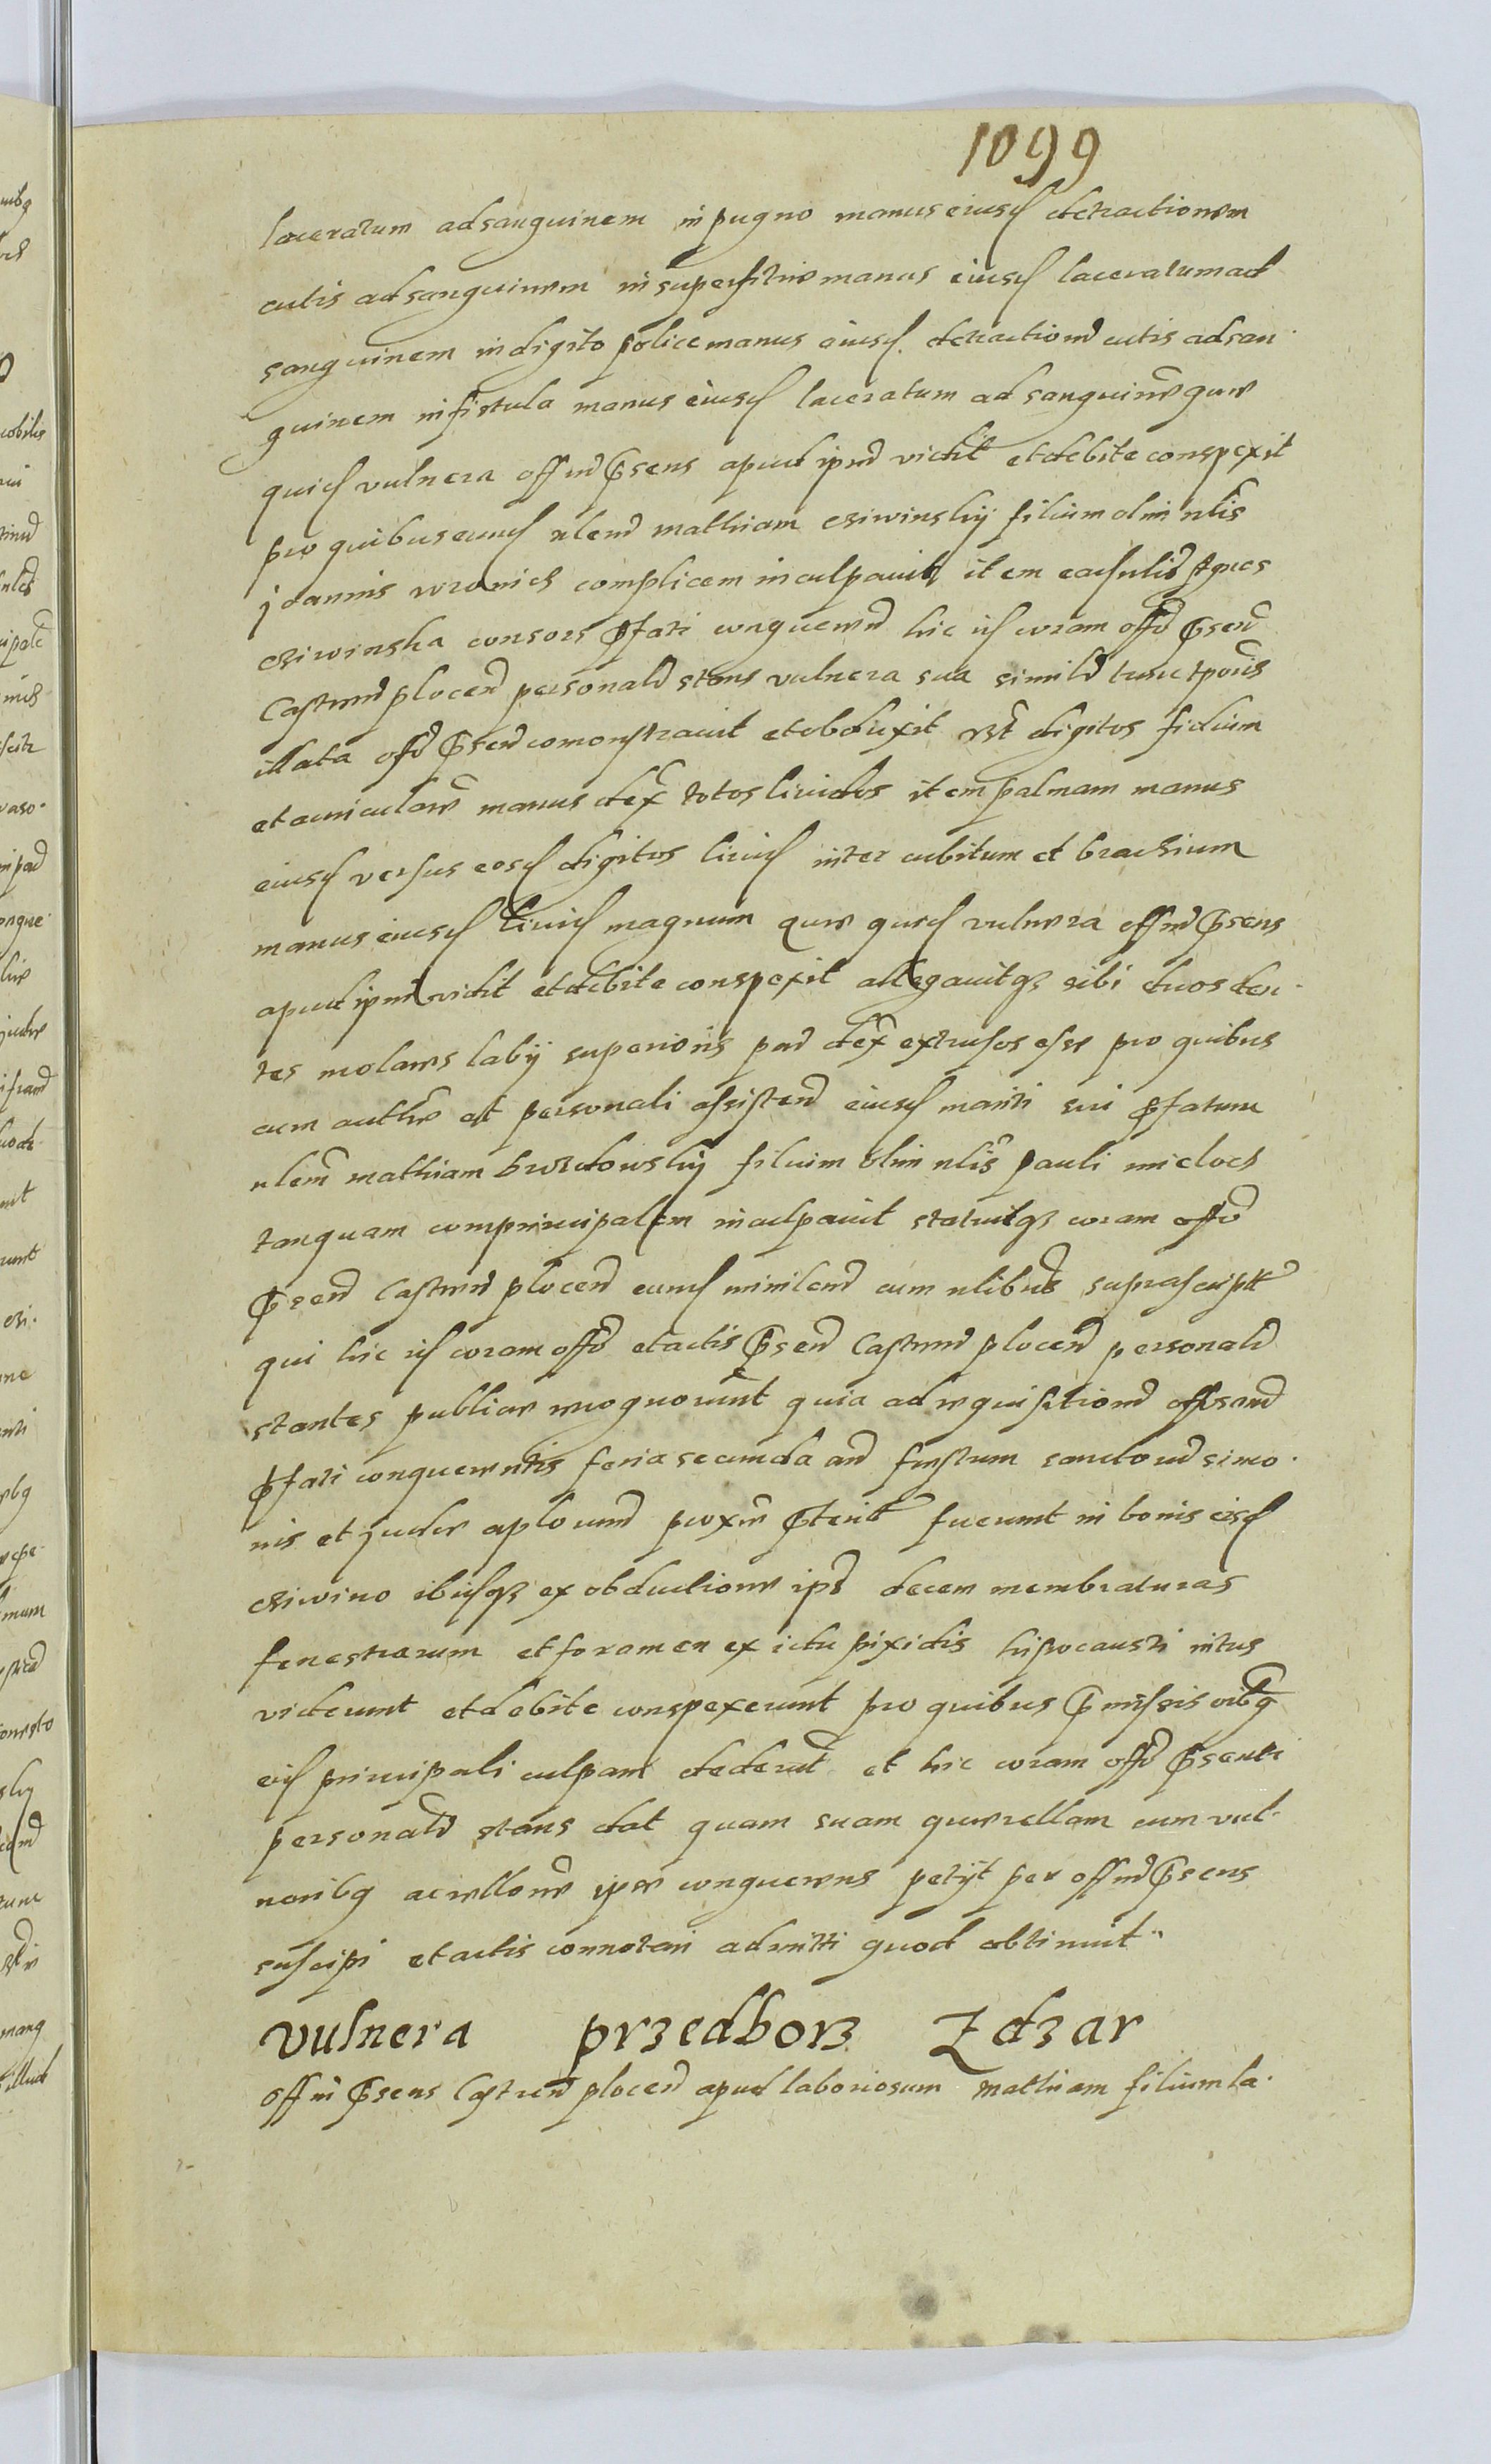 1099
laceratum ad sanguinem in pugno manus eiusd detractionem
cutis ad sanguinem in superfitie manus eiusd laceratum ad
sanguinem in digito police manus eiusd. detractiond cutis ad san
guinem in fistula manus eiusd laceratum ad sanguine que
quid vulnera offm psens apud ipm vidit et debite conspexit
pro quibus eund nlem mathiam criwinskij filium olim nlis
joannis complicem inculpavit, item ead nlis Agnes
criwinska consors pfati conqueren hic id coram offo psen
Castren plocen personal stans vulnera sua simil tunc tporis
illata offo psen comonstravit et obduxit digitos
et auricularē manus dex totos lividos item palmam manus
eiusd versus eosd digitos livid inter cubitum et brachium
manus eiusd livid magnum que qued vulnera offm psens
apud ipm vidit et debite conspexit allegavitqз sibi duos den
tes molares labij superioris par dex extrusos esse pro quibus
cum et personali assisten eiusd mariti sui pfatum
nlem mathiam brzdowskij filium olim nlis pauli
tanquam comprincipalem inculpavit statuitqз coram offo
psen Castren plocen eund minilem cum nlibus suprascript
qui hic id coram offo et actis psen Castren plocen personal
stantes publice recognorunt quia ad requisitiond
pfati conquerentis feria secunda an festum sanctorum simo
nis et jude aplorum prox pterit fuerunt in bonis eisd
criwino ibidqз ex obductione ips decem membraturas
fenestrarum et foramen ex ictu pixidis hipocausti intus
viderunt et debite conspexerunt pro quibus pmissis oibq
eid principali culpam dederut et hic coram offo psenti
personal stans dat quam suam querellam cum vul
neribq ac ipse conquerens petijt per offm psens
suscipi et actis connotari admitti quod obtinuit
vulnera przedborz Zdzar
offm psens Castren plocen apud laboriosum mathiam filium la